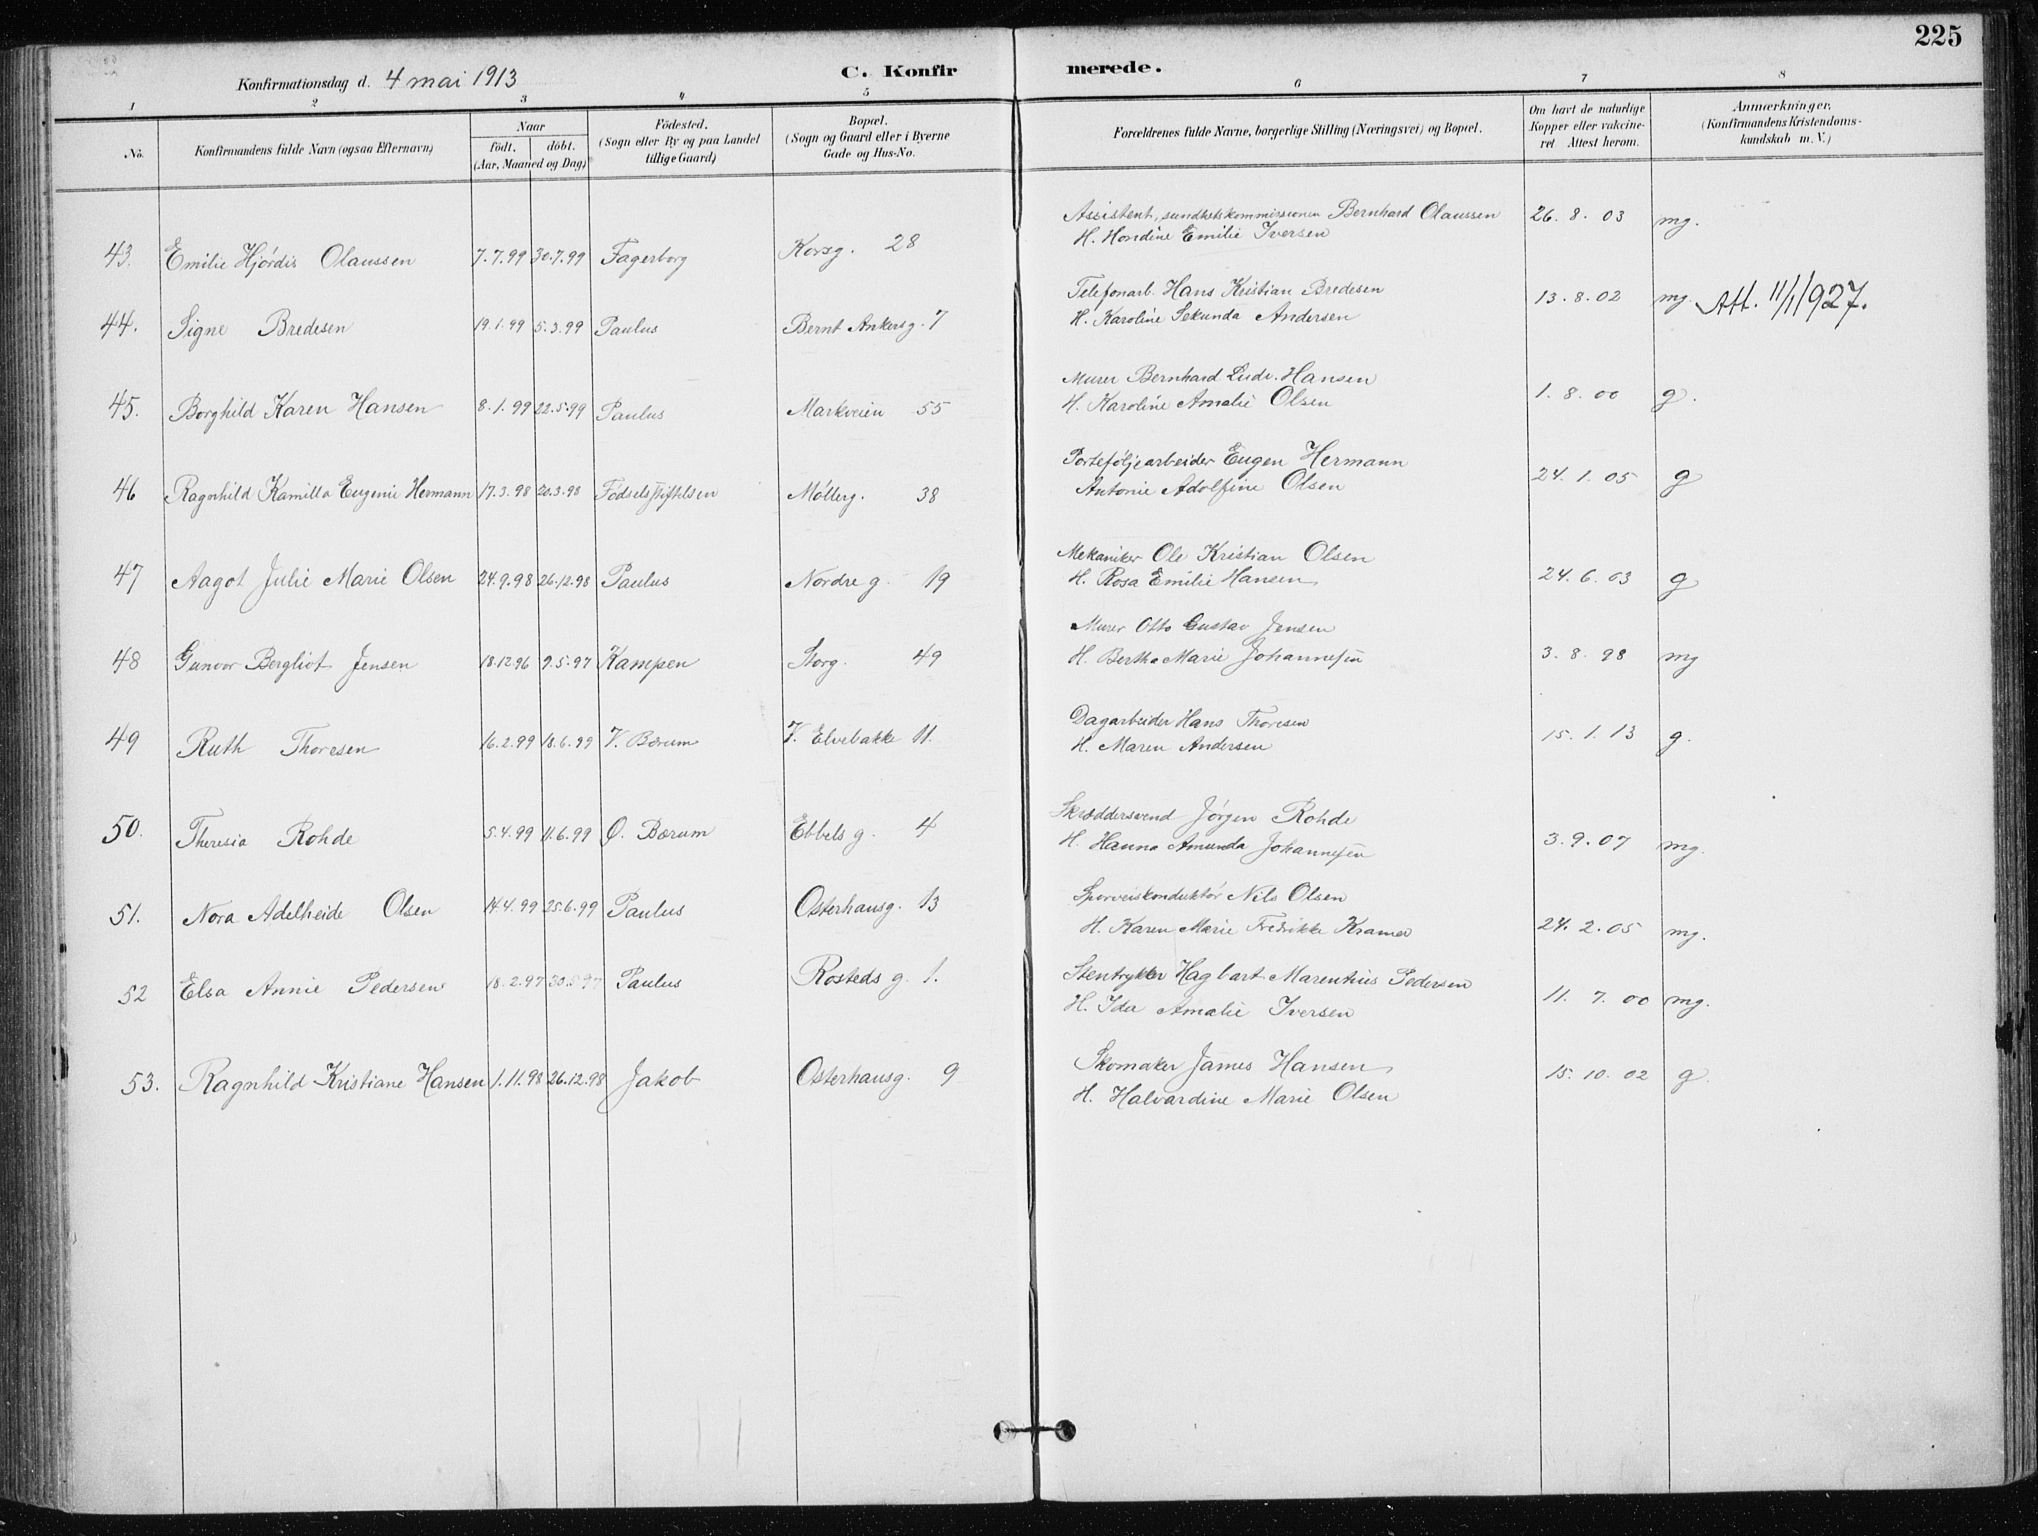 225
Konfirmationsdag d. 4 mai 1913
C. Konfir merede.
1 2 3 4 5 6 7 8
No.
Konfirmandens fulde Navn (ogsaa Efternavn)
Naar
födt. döbt.
(Aar, Maaned og Dag)
Födested.
(Sogn eller By og paa Landet
tillige Gaard)
Bopæl.
(Sogn og Gaard eller i Byerne
Gade og Hus-No.
Forældrenes fulde Navne, borgerlige Stilling (Næringsvei) og Bopæl.
Om havt de naturlige
Kopper eller vakcine-
ret Attest herom.
Anmærkninger.
(Konfirmandens Kristendoms-
kundskab m. V.)
43. Emilie Hjördis Olaussen 7.7.99 30.7.99 Fagerborg Korsg. 28
Assistent, sundhetskommissionen Bernhard Olaussen 26. 8. 03 mg.
H. Hondine Emilie Iversen
44. Signe Bredesen 19.1.99 5.3.99 Paulus Bernt Ankersg. 7
Telefonarb. Hans Kristian Bredesen 13. 8. 02 mg. Att. 11/1 1927.
H. Karoline Sekunda Andersen
45. Borghild Karen Hansen 8.1.99 22.5.99 Paulus Markveien 55
Murer Bernhard Ludv. Hansen 1. 8. 00 g.
H. Karoline Amalie Olsen
46 Ragnhild Kamilla Eugenie Hermann 17.3.98 20.3.98 Födselsstiftelsen Møllerg. 38
Porteføljearbeider Eugen Hermann 24. 1. 05 g
Antonie Adolfine Olsen
47 Aagot Julie Marie Olsen 24.9.98 26.12.98 Paulus Nordre g. 19
Mekaniker Ole Kristian Olsen 24. 6. 03 g
H. Rosa Emilie Hansen
48 Gunvor Bergliot Jensen 18.12.96 9.5.97 Kampen Storg. 49
Murer Otto Gustav Jensen 3. 8. 98 mg
H. Bertha Marie Johannesen
49 Ruth Thoresen 16.2.99 18.6.99 V. Bærum V. Elvebakke 11.
Dagarbeider Hans Thoresen 15. 1. 13 g.
H. Maren Andersen
50. Theresia Rohde 5.4.99 11.6.99 Ø. Bærum Ebbels g. 4
Skræddersvend Jørgen Rohde 3. 9. 07 mg.
H. Hanna Amunda Johannesen
51. Nora Adelheide Olsen 14.4.99 25.6.99 Paulus Osterhausg. 13
Sporveiskonduktör Nils Olsen 24. 2. 05 mg.
H. Karen Marie Fredrikke Kramer
52 Elsa Annie Pedersen 18.2.97 30.5.97 Paulus Rosteds g. 1.
Stentrykker Hagbart Marentius Pedersen 11. 7. 00 mg.
H. Ida Amalie Iversen
53. Ragnhild Kristiane Hansen 1.11.98 26.12.98 Jakob Osterhausg. 9
Skomaker James Hansen 15. 10. 02 g.
H. Halvardine Marie Olsen